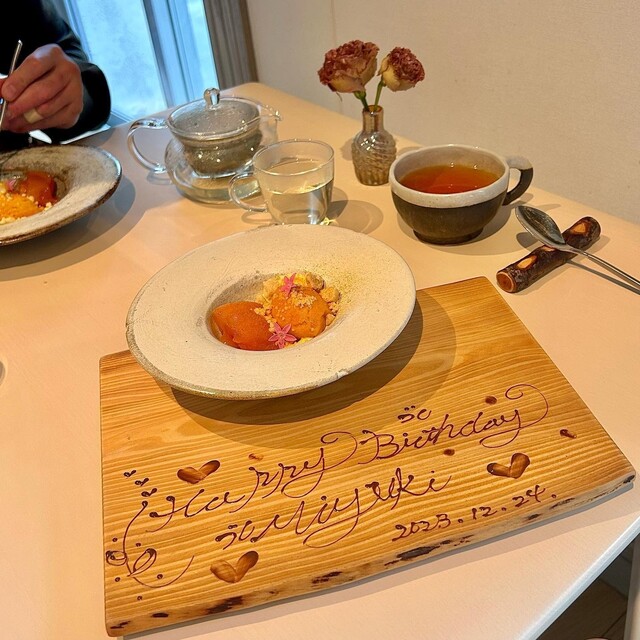 Happy Birthday
Miyuki
2023.12.24.